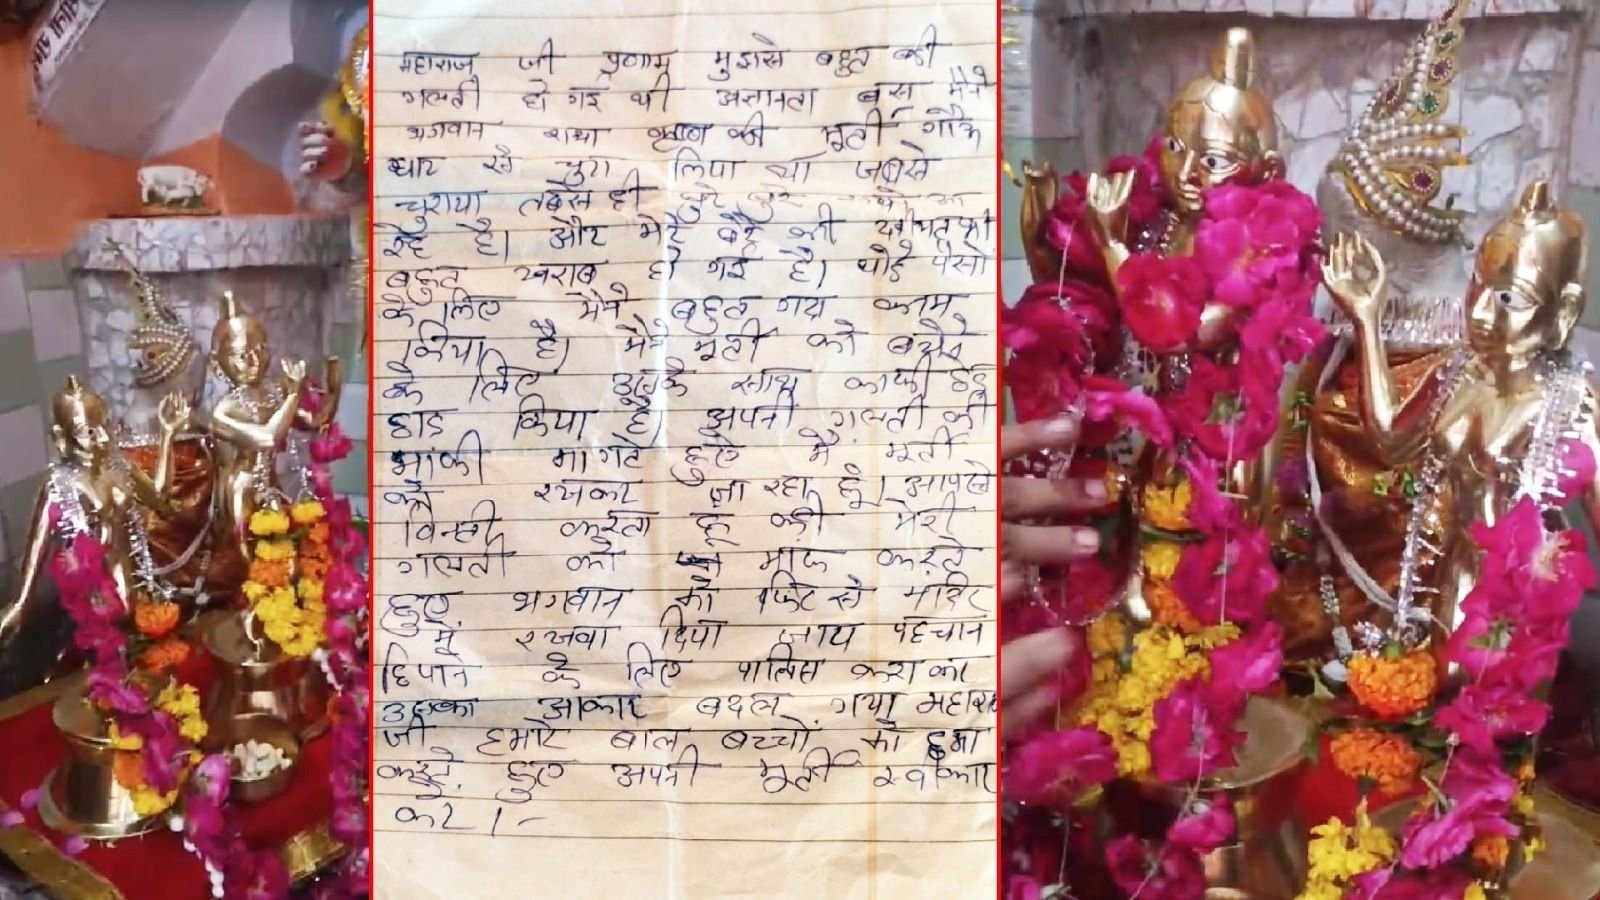 महाराज जी प्रणाम मुझसे बहुत बडी
गलती हो गई थी अज्ञानता बस मैने
भगवान राधा कृष्ण की मूर्ती गौऊ
घाट से चुरा लिया था जबसे
चुराया तबसे ही बुरे बुरे
रहे है। और मेरे बेटे की तबीयत भी
बहुत खराब हो गई है। थोडे पैसो
के लिए मैने बहुत गंदा काम
किया है। मैने मूर्ती को बेचने
के लिए उसके साथ काफी छेड़
छाड़ किया है। अपनी गलती की
माफी मागंते हुए मै मूर्ती
को रखकर जा रहा हूँ। आपसे
विन्ती करता हूं की मेरी
गलती को माफ करते
हुए भगवान को फिर से मंदिर
में रखवा दिया जाय पहचान
छिपाने के लिए पालिस कराकर
उसका आकार बदल गया महाराज
जी हमारे बाल बच्चों को क्षमा
करते हुए अपनी मूर्ती स्वीकार
करे।-